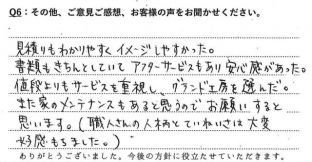 Q6：その他、ご意見ご感想、お客様の声をお聞かせください。
見積りもわかりやすく イメージしやすかった。
書類もきちんとしていて アフターサービスもあり 安心感があった。
値段よりもサービスを重視し、グランド工房を選んだ。
また家のメンテナンスもあると思うので お願いすると
思います。(職人さんの人柄とていねいさは大変
好感もちました。)
ありがとうございました。今後の方針に役立たせていただきます。